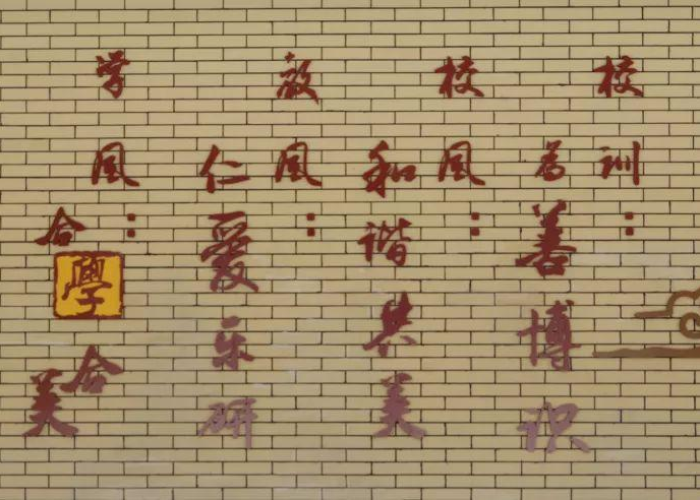 校训:
为善博识
校风:
和谐共美
教风:
仁爱乐研
学风:
合學合美